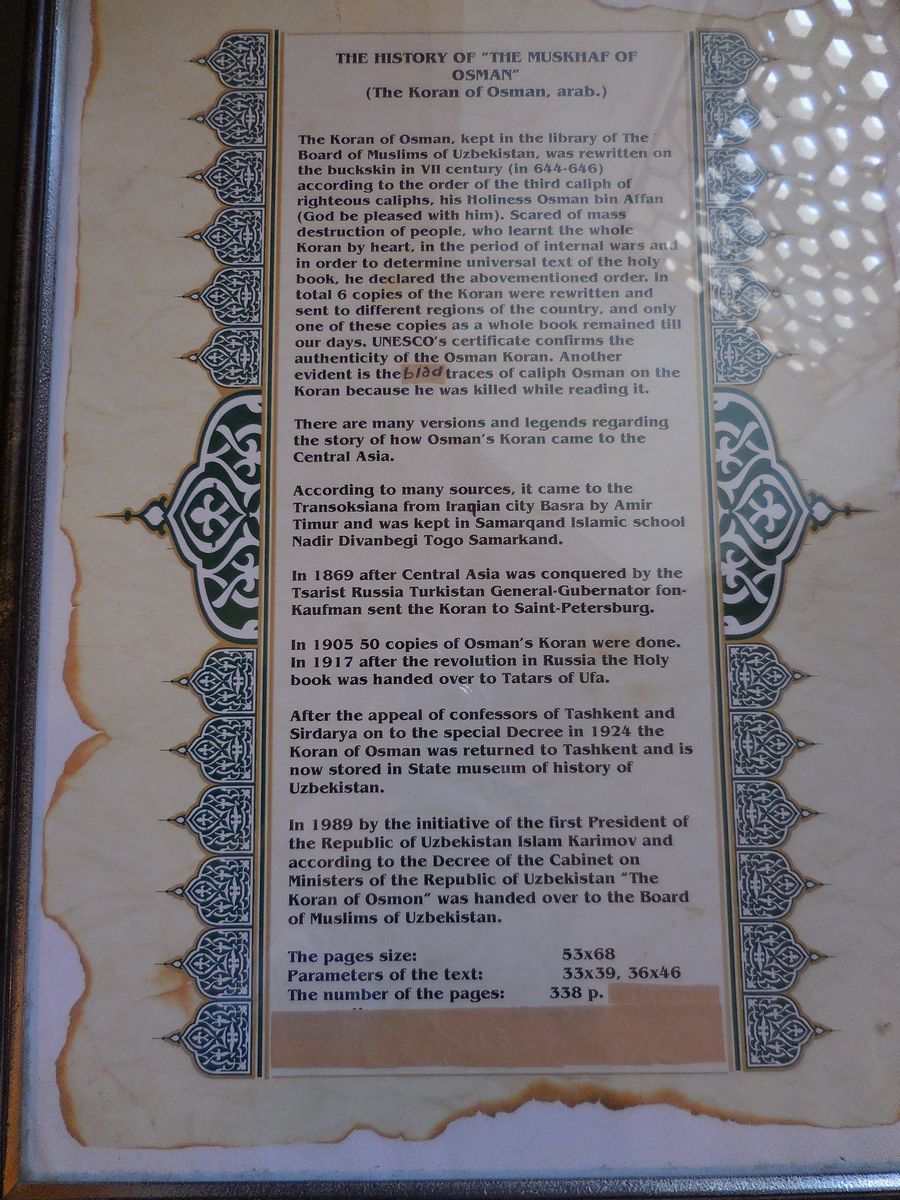 THE HISTORY OF "THE MUSKHAF OF
OSMAN"
(The Koran of Osman, arab.)
The Koran of Osman, kept in the library of The
Board of Muslims of Uzbekistan, was rewritten on
the buckskin in VII century (in 644-646)
according to the order of the third caliph of
righteous caliphs, his Holiness Osman bin Affan
(God be pleased with him). Scared of mass
destruction of people, who learnt the whole
Koran by heart, in the period of internal wars and
in order to determine universal text of the holy
book, he declared the abovementioned order. In
total 6 copies of the Koran were rewritten and
sent to different regions of the country, and only
one of these copies as a whole book remained till
our days. UNESCO's certificate confirms the
authenticity of the Osman Koran. Another
evident is the blad traces of caliph Osman on the
Koran because he was killed while reading it.
There are many versions and legends regarding
the story of how Osman's Koran came to the
Central Asia.
According to many sources, it came to the
Transoksiana from Iraqian city Basra by Amir
Timur and was kept in Samarqand Islamic school
Nadir Divanbegi Togo Samarkand.
In 1869 after Central Asia was conquered by the
Tsarist Russia Turkistan General-Gubernator fon-
Kaufman sent the Koran to Saint-Petersburg.
In 1905 50 copies of Osman's Koran were done.
In 1917 after the revolution in Russia the Holy
book was handed over to Tatars of Ufa.
After the appeal of confessors of Tashkent and
Sirdarya on to the special Decree in 1924 the
Koran of Osman was returned to Tashkent and is
now stored in State museum of history of
Uzbekistan.
In 1989 by the initiative of the first President of
the Republic of Uzbekistan Islam Karimov and
according to the Decree of the Cabinet on
Ministers of the Republic of Uzbekistan "The
Koran of Osmon" was handed over to the Board
of Muslims of Uzbekistan.
The pages size: 53x68
Parameters of the text: 33x39, 36x46
The number of the pages: 338 p.